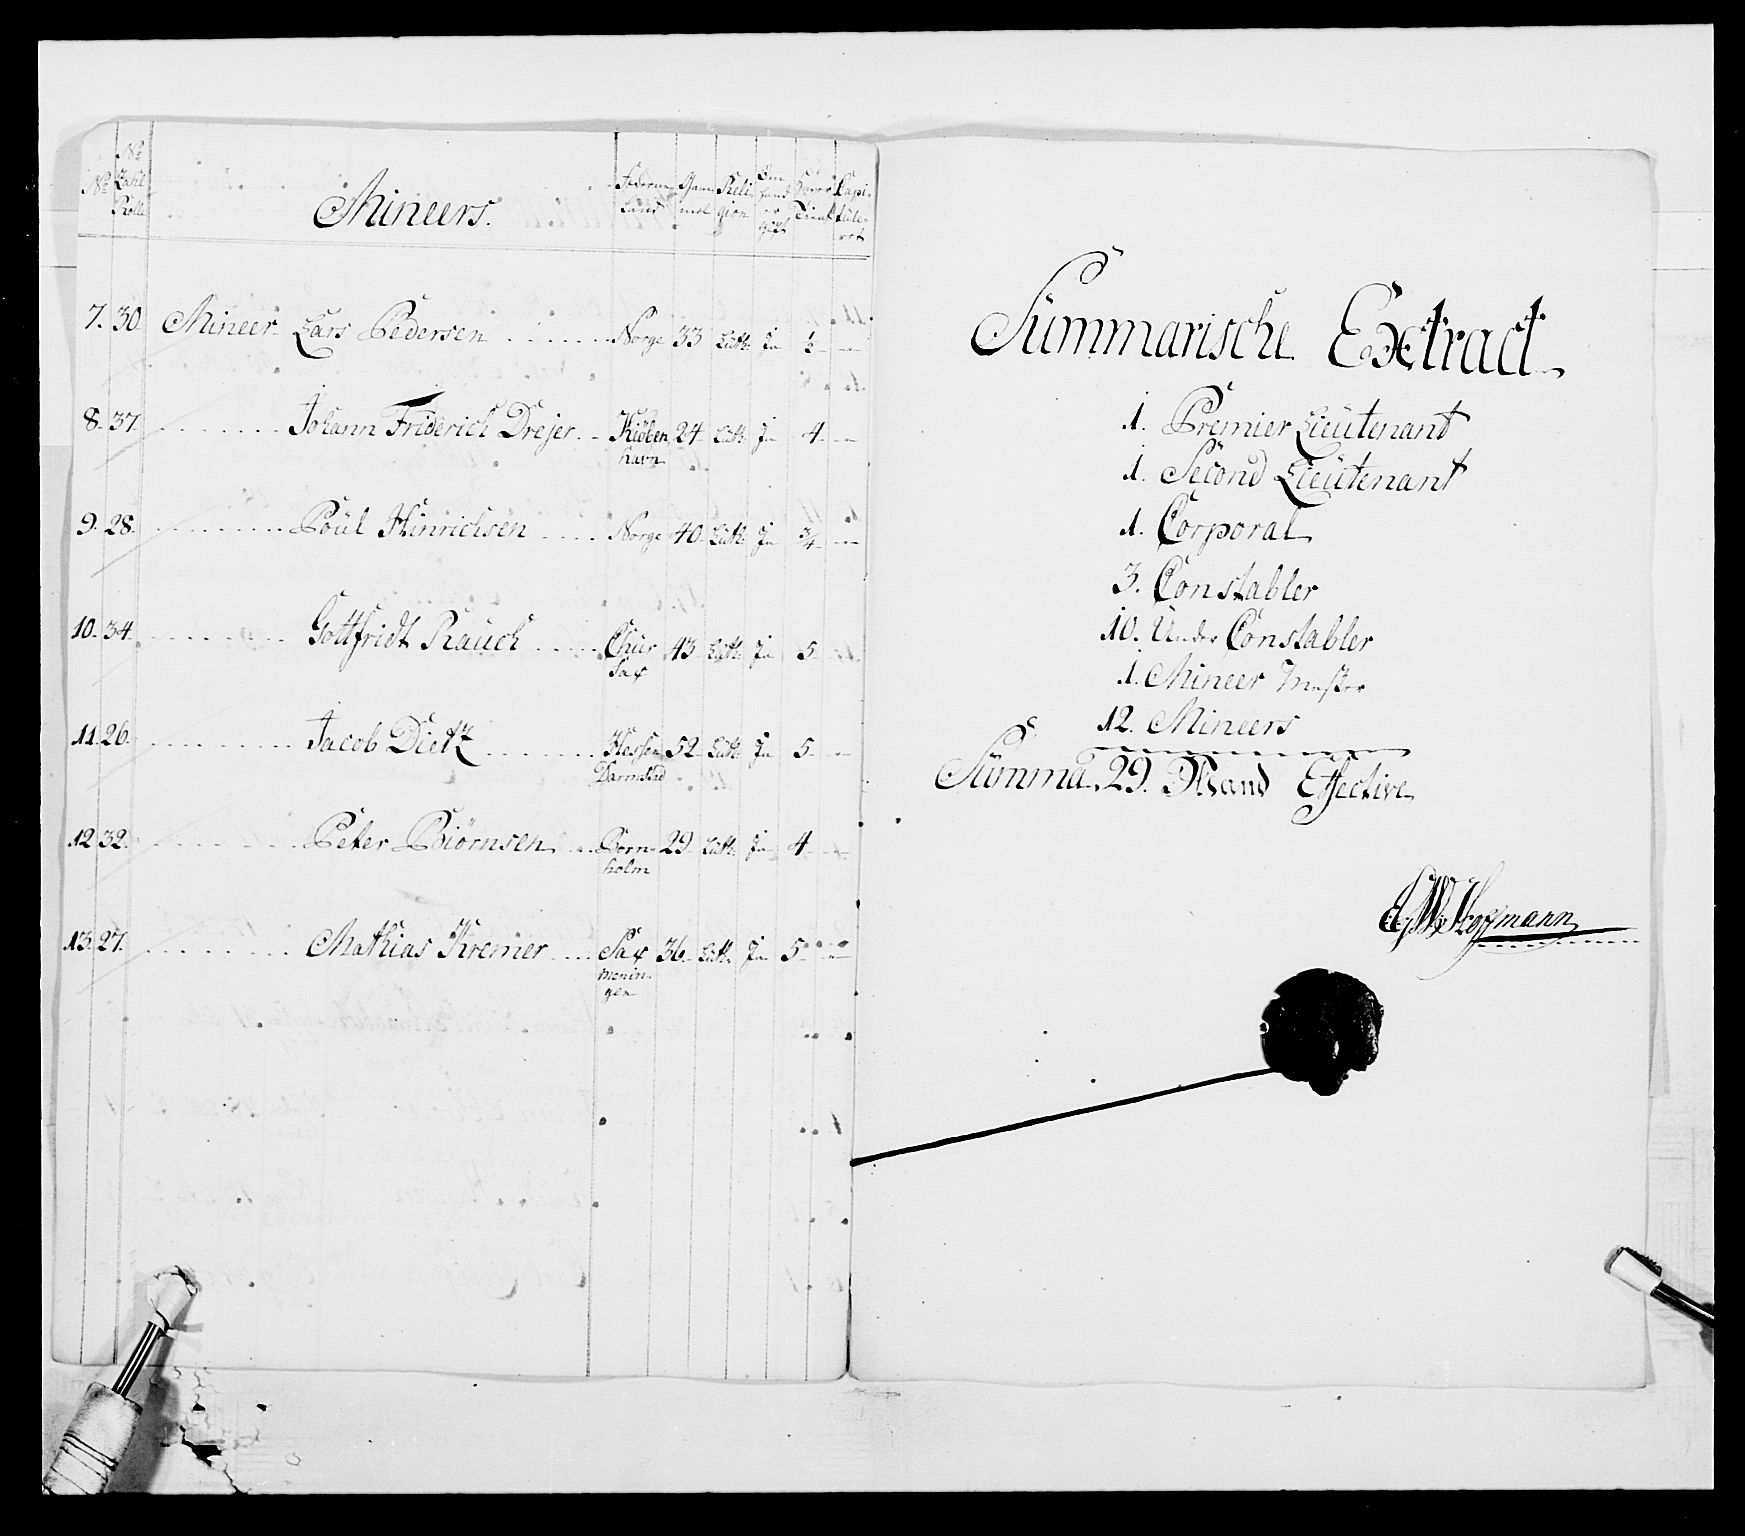 No
No Zahl Rolle
Mineers.
Federne Land
Gam mel
Reli gion
Om hand er gift
Capi tüle ret
7. 30. Mineer Lars Pedersen Norge 33 Luth. Ja ½
8. 37. Johann Friderich Drejer Kiöben havn 24 Luth. Ja 4
9. 28. Poül Hinrichsen Norge 40 Luth. Ja ¾
10. 34. Gottfridt Rauch Chur Sax 43 Luth. Ja 5
11. 26. Jacob Dietz Hessen Darmstad 52 Luth. Ja 5
12. 32. Peter Biörnsen Born holm 29 Luth. Ja 4
13. 27. Mathias Kremer Sax menin gen 36 Luth. Ja 5
Summarische Extract
1. Premier Lieütenant
1. Second Lieütenant
1. Corporal
3. Constabler
10. Under Constabler
1. Mineer Mester
12. Mineers
Summa. 29. Mand Effective
Hoffmann